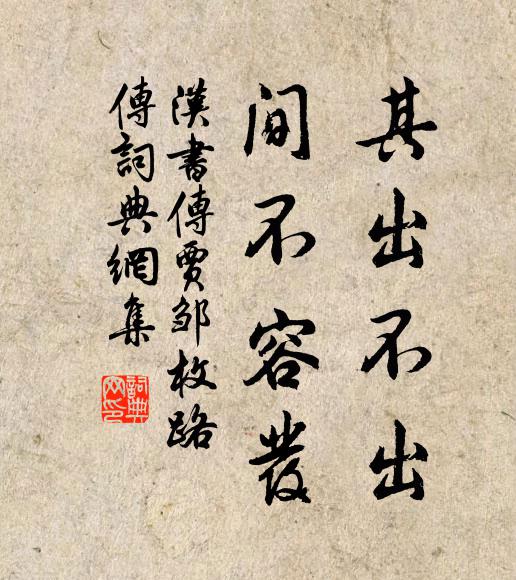 其出不出
間不容發
漢書傳賈鄒枚路
傳詞典網集
詞典
网印